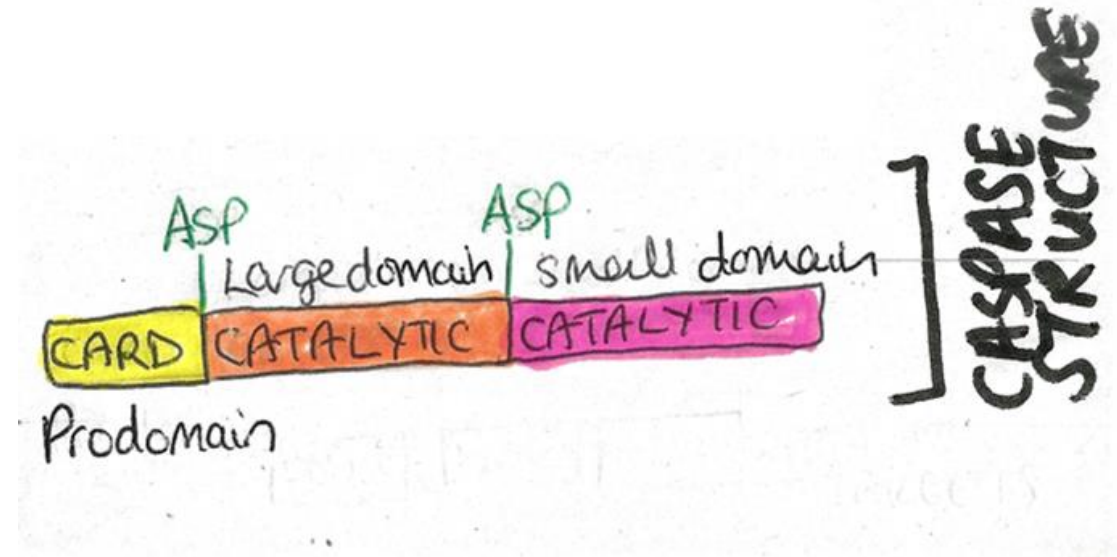 ASP ASP
Large domain small domain
CARD CATALYTIC CATALYTIC
Prodomain
CASPASE
STRUCTURE